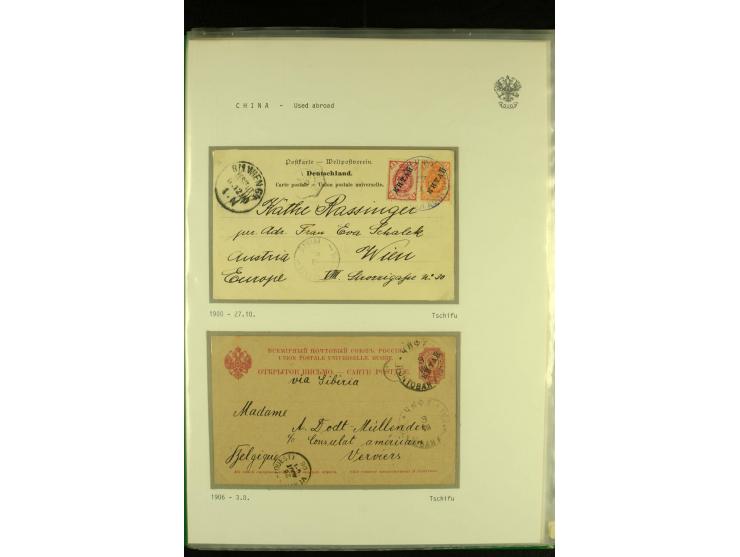 CHINA - Used abroad
Postkarte — Weltpostverein.
Deutschland.
Carte postale — Union postale universelle.
КИТАЙ
КИТАЙ
WIEN
Käthe Rassinger
per Adr. Frau Eva Schalek
Austria Wien
Europe VIII. Strozzigasse No 30
1900 - 27.10. Tschifu
ВСЕМІРНЫЙ ПОЧТОВЫЙ СОЮЗЪ. РОССІЯ.
UNION POSTALE UNIVERSELLE. RUSSIE.
ОТКРЫТОЕ ПИСЬМО. — CARTE POSTALE.
КИТАЙ
via Sibiria
Madame
A. Dodt-Müllender
c/o Consulat américain
Belgique Verviers
1906 - 3.8. Tschifu